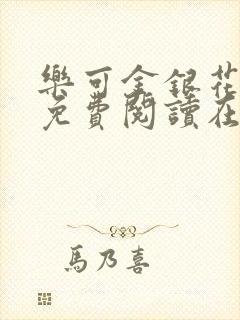 樂可金銀花
免費閱讀在
馬乃喜